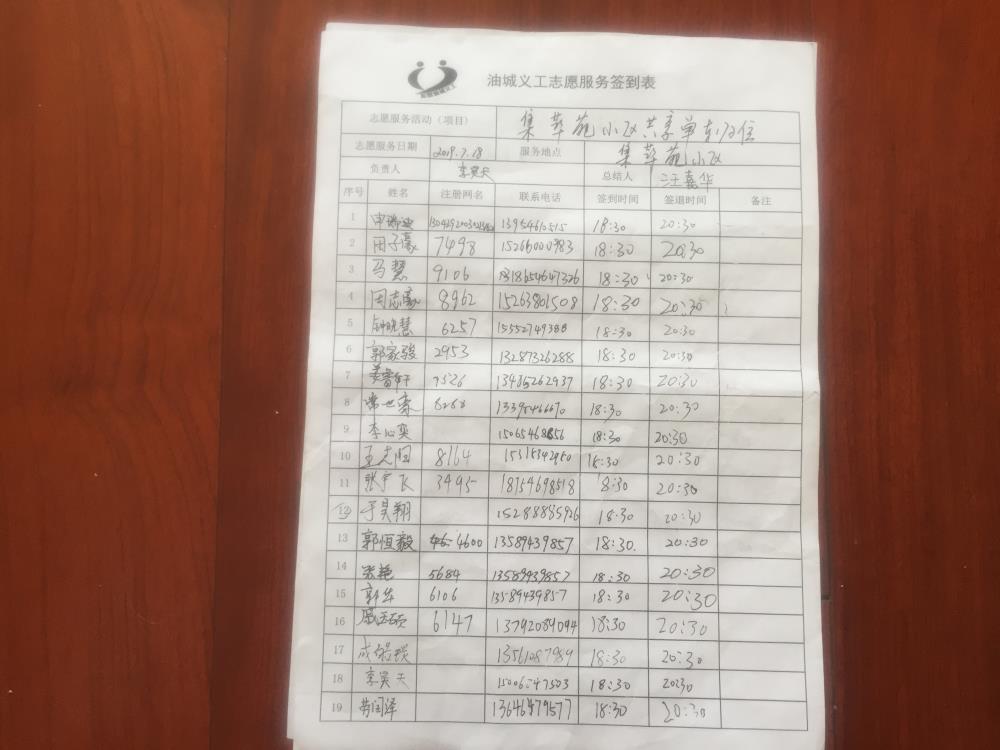 油城义工志愿服务签到表
志愿服务活动（项目） 集翠苑小区共享单车归位
志愿服务日期 2019.7.18 服务地点 集翠苑小区
负责人 李昊天 总结人 汪嘉华
序号 姓名 注册网名 联系电话 签到时间 签退时间 备注
1 18:30 20:30
2 田子豪 7498 15266000983 18:30 20:30
3 马慧 9106 18:30 20:30
4 周志豪 8962 15263801508 18:30 20:30
5 钟晓慧 6257 18:30 20:30
6 郭家骏 2953 13287326288 18:30 20:30
7 姜睿轩 9526 13485262937 18:30 20:30
8 18:30 20:30
9 李沁奕 18:30 20:30
10 王志国 8164 18:30 20:30
11 张宇飞 3495 18754698518 18:30 20:30
12 于昊翔 15288885926 18:30 20:30
13 郭恒毅 4600 13589439857 18:30 20:30
14 张艳 5684 13589439857 18:30 20:30
15 郭华 6106 13589439857 18:30 20:30
16 6147 13792089094 18:30 20:30
17 13561087989 18:30 20:30
18 李昊天 18:30 20:30
19 13646479577 18:30 20:30